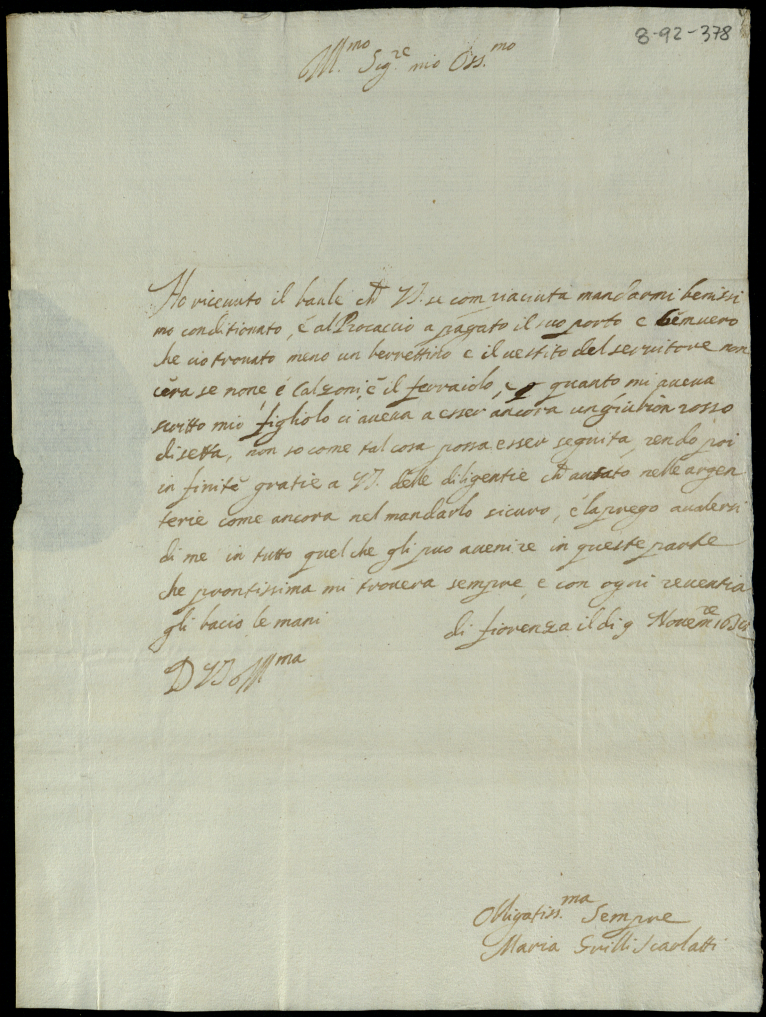 8-92-378
Ill.mo Sig.re mio Oss.mo
Ho riceuuto il baule ch VS. se compiaciuta mandarmi benissi
mo conditionato, é al Procaccio a pagato il suo porto e bé in uero
che cio trouato meno un berrettino e il uestito del seruitore non
cera se none é Calzoni, é il ferraiolo, e p quanto mi aueua
scritto mio figliolo ci aueua a esser ancora un giubbon rosso
di setta, non so come tal cosa possa esser seguita, rendo poi
in finite gratie a VS. delle diligentie ch ausato nelle argen
terie come ancora nel mandarlo sicuro, é la prego aualersi
di me in tutto quel che gli puo auenire in queste parte
che prontissima mi trouera sempre e con ogni reuentia
gli bacio le mani
di fiorenza il di 9 Novem.re
D VS Ill.ma
Obligatiss.ma Sempre
Maria Grilli Scarlatti